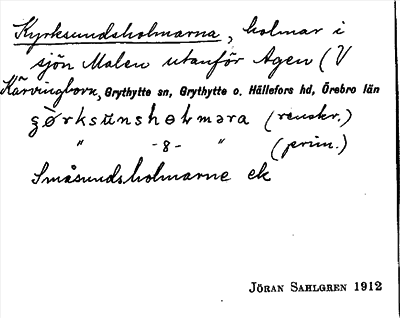 Kyrksundsholmarna, holmar i
sjön Malen utanför Agen (V
Kärvingborn, Grythytte sn, Grythytte o. Hällefors hd, Örebro län
(renskr.)
" -8- " (prim.)
Småsundsholmarne ek
JÖRAN SAHLGREN 1912